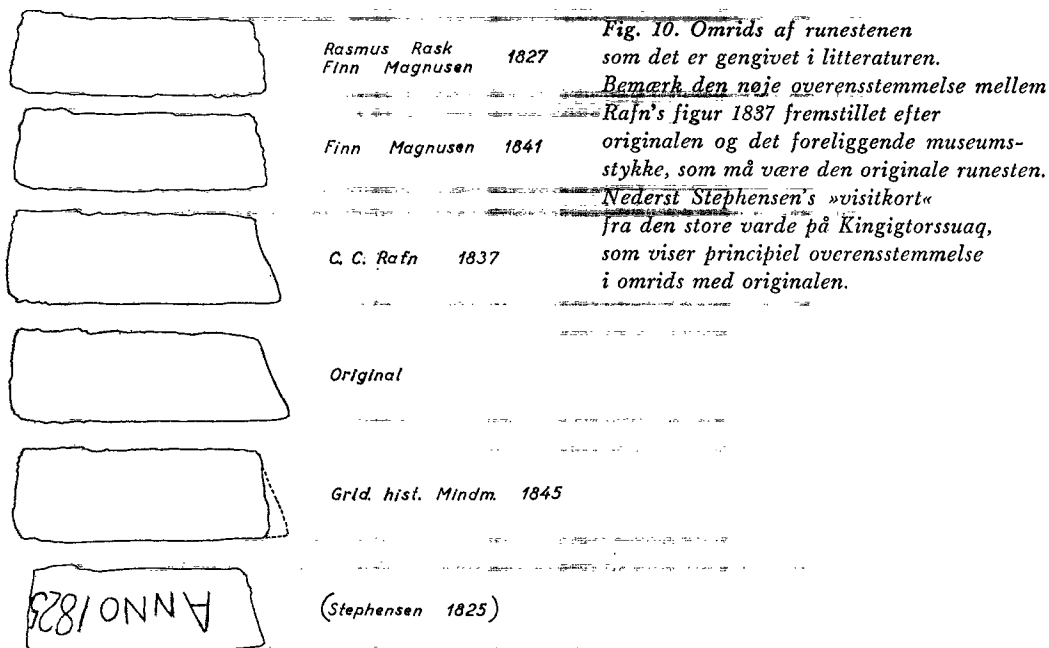 Rasmus Rask
Finn Magnusen 1827
Finn Magnusen 1841
C. C. Rafn 1837
Original
Grld. hist. Mindm. 1845
ANNO 1825
(Stephensen 1825)
Fig. 10. Omrids af runestenen
som det er gengivet i litteraturen.
Bemærk den nøje overensstemmelse mellem
Rafn's figur 1837 fremstillet efter
originalen og det foreliggende museums-
stykke, som må være den originale runesten.
Nederst Stephensen's »visitkort«
fra den store varde på Kingigtorssuaq,
som viser principiel overensstemmelse
i omrids med originalen.